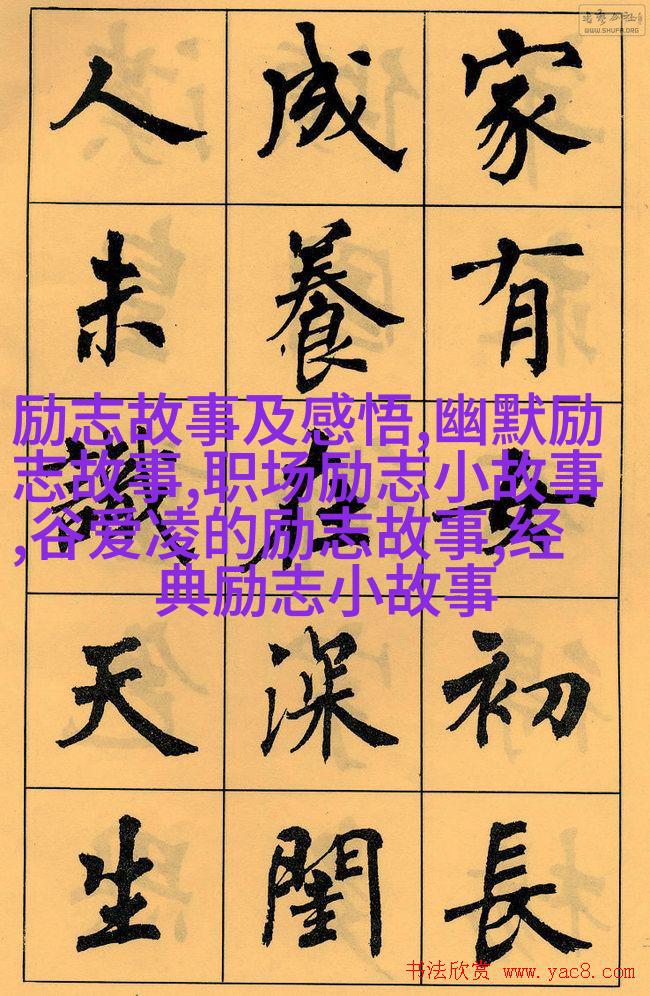 WWW.SHUFA.ORG
家有女初長
成養在深閨
人未識天生
励志故事及感悟,幽默励
志故事,职场励志小故事
,谷爱凌的励志故事,经
典励志小故事
书法欣赏 www.yac8.com